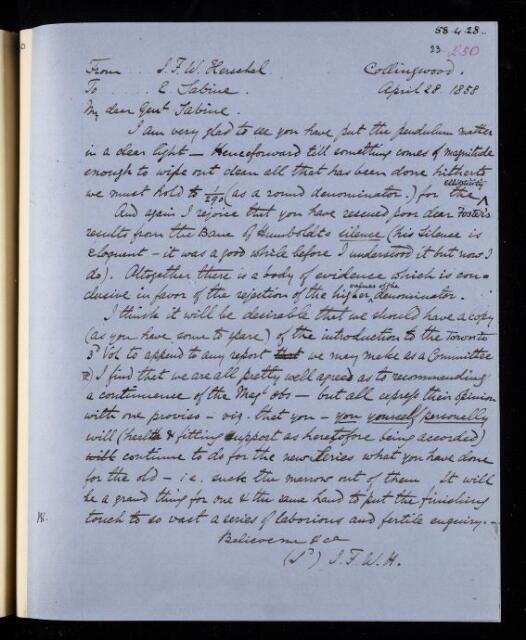 58.4.28.
23. 250
From J. F. W. Herschel. Collingwood.
To E. Sabine. April 28. 1858
My dear Genl. Sabine.
I am very glad to see you have put the pendulum matter
in a clear light — Henceforward till something comes of magnitude
enough to wipe out clean all that has been done hitherto
we must hold to 1/290 (as a round denominator.) for the ellipticity
And again I rejoice that you have rescued poor dear Foster's
results from the Bane of Humboldt's silence (his silence is
eloquent — it was a good while before I understood it but now I
do). Altogether there is a body of evidence which is con-
clusive in favor of the rejection of the higher values of the denominator.
I think it will be desirable that we should have a copy
(as you have some to spare) of the introduction to the Toronto
3d Vol to append to any report that we may make as a Committee
I find that we are all pretty well agreed as to recommending
a continuence of the Magc obs — but all express their opinion
with one proviso — viz. that you — you yourself personally
will (health & fitting support as heretofore being accorded)
will continue to do for the new Series what you have done
for the old — i.e. suck the marrow out of them It will
be a grand thing for one & the same hand to put the finishing
touch to so vast a series of laborious and fertile enquiry. —
Believe me &ca
(Sd) J. F. W. H.